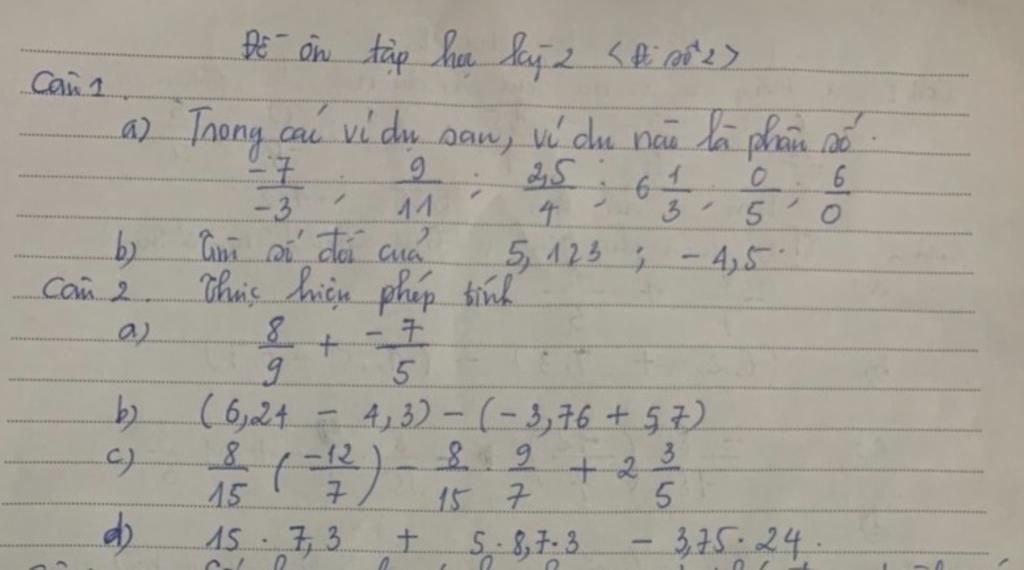 Đề ôn tập học kỳ 2 <Đề số 2>
Câu 1.
a) Trong các ví dụ sau, ví dụ nào là phân số.
-7/-3 ; 9/11 ; 2,5/4 ; 6 1/3 ; 0/5 ; 6/0
b) Tìm số đối của 5,123 ; -4,5.
Câu 2. Thực hiện phép tính
a) 8/9 + -7/5
b) (6,24 - 4,3) - (-3,76 + 5,7)
c) 8/15 (-12/7) - 8/15 . 9/7 + 2 3/5
d) 15 . 7,3 + 5 . 8,7 . 3 - 3,75 . 24.